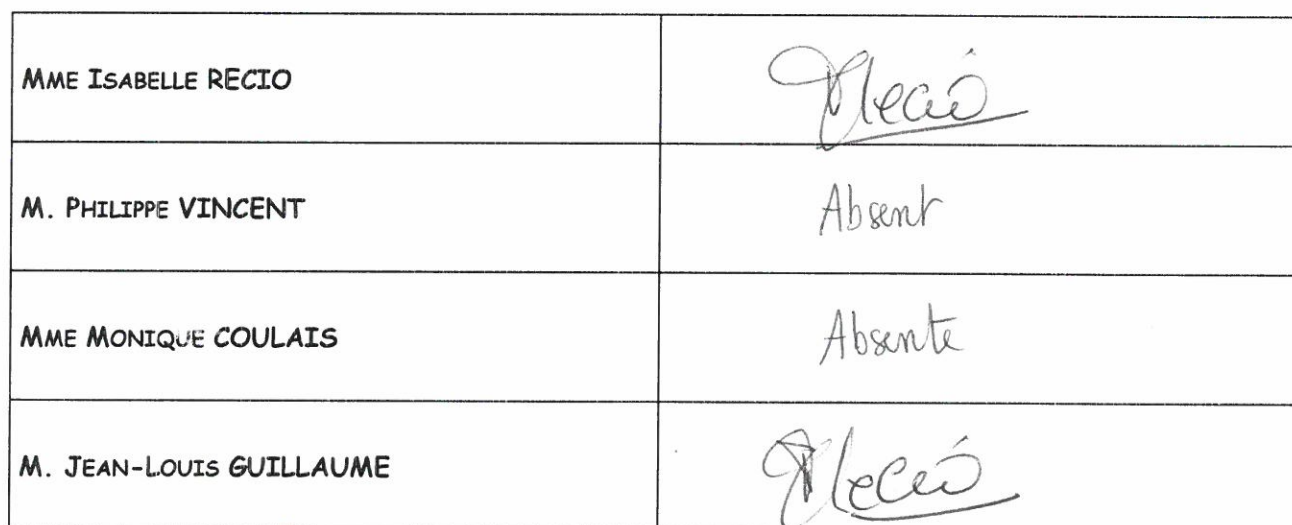 MME ISABELLE RECIO
Recio
M. PHILIPPE VINCENT
Absent
MME MONIQUE COULAIS
Absente
M. JEAN-LOUIS GUILLAUME
Recio